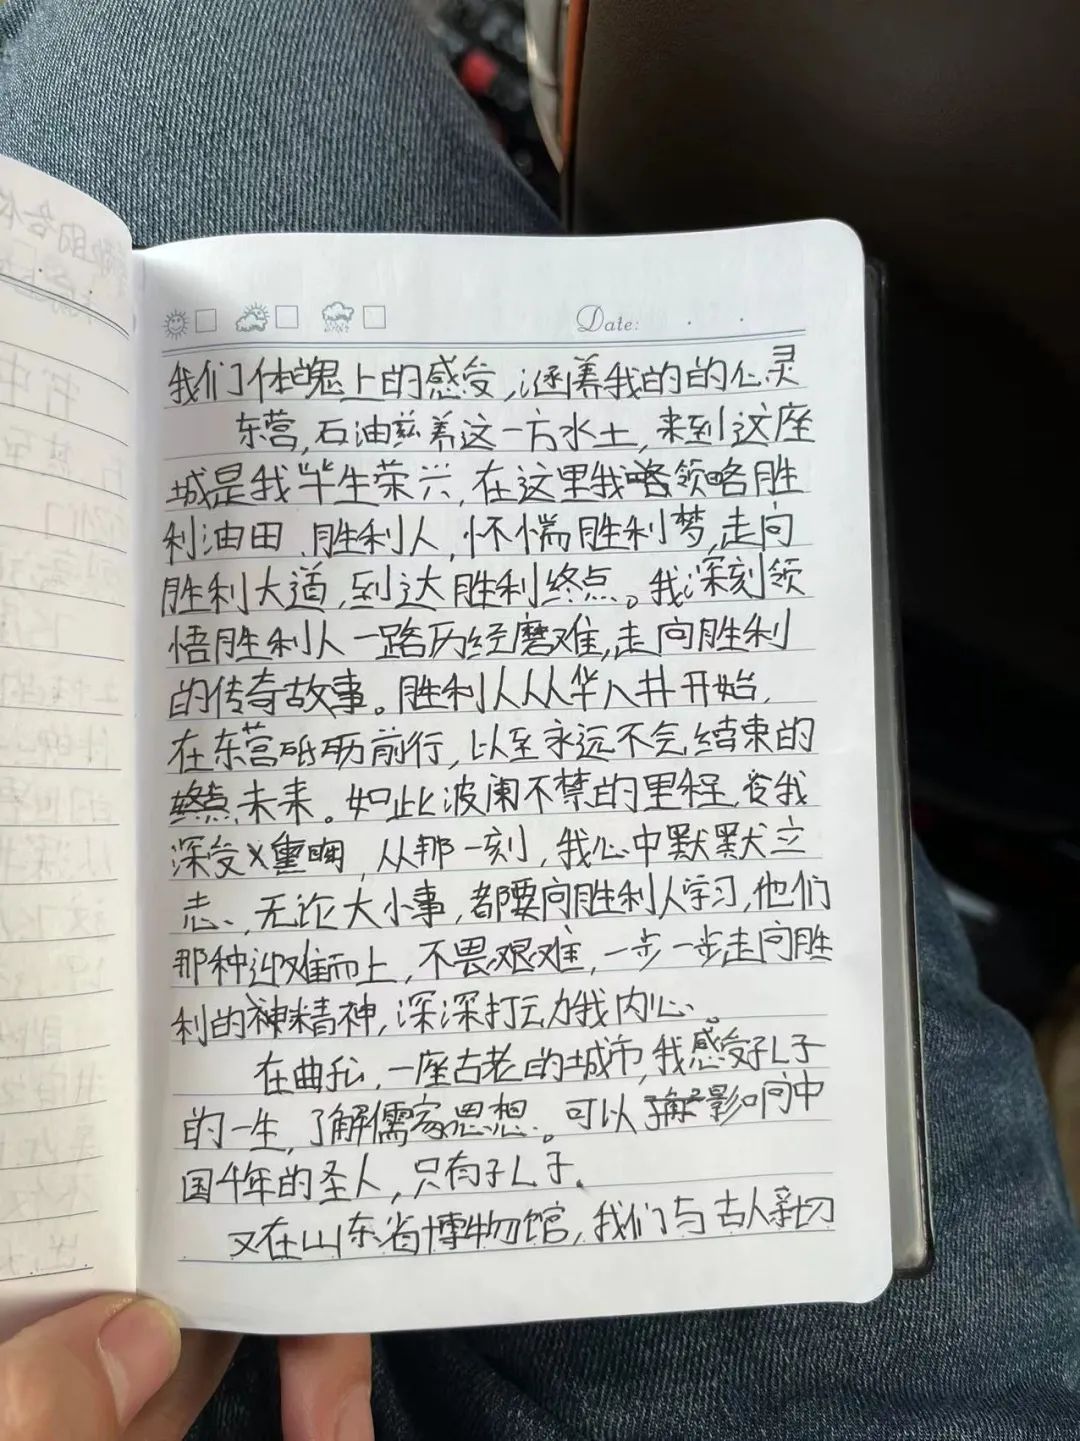 Date:
我们体魄上的感受，涵养我的的心灵
东营，石油兹养这一方水土，来到这座
城是我毕生荣兴，在这里我领略胜
利油田、胜利人，怀惴胜利梦，走向
胜利大道，到达胜利终点。我深刻领
悟胜利人一路历经磨难，走向胜利
的传奇故事。胜利人从华八井开始，
在东营砥砺前行，以至永远不会结束的
未来。如此波阑不禁的里程，令我
深受，从那一刻，我心中默默立
志、，无论大小事，都要向胜利人学习，他们
那种迎难而上，不畏艰难，一步一步走向胜
利的神精神，深深打动我内心。
在曲阜，一座古老的城市，我感受孔子
的一生，了解儒家思想。可以影响中
国千年的圣人，只有孔子。
又在山东省博物馆，我们与古人亲切